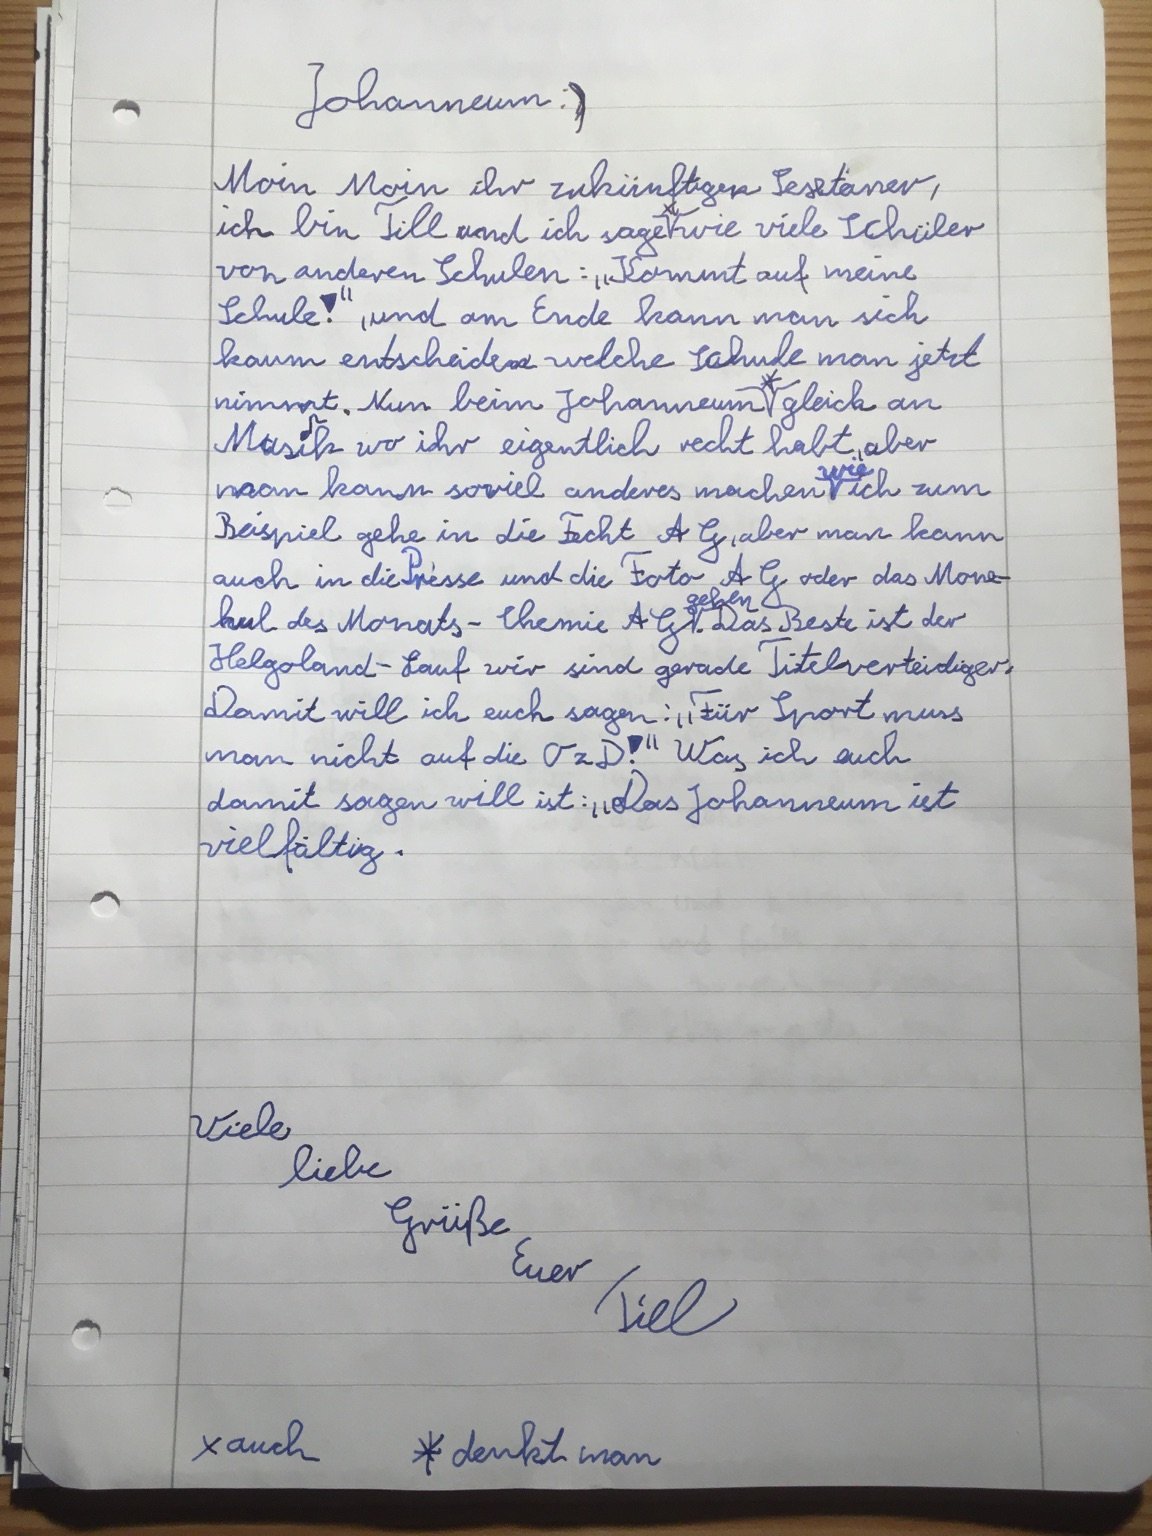 Johanneum :)
Moin Moin ihr zukünftigen Sextaner,
x
ich bin Till und ich sage wie viele Schüler
von anderen Schulen: „Kommt auf meine
Schule!“, und am Ende kann man sich
kaum entscheiden welche Schule man jetzt
*
nimmt. Nun beim Johanneum gleich an
Musik wo ihr eigentlich recht habt, aber
wie
man kann soviel anderes machen ich zum
Beispiel gehe in die Fecht AG, aber man kann
auch in die Presse und die Foto AG oder das Mone-
gehen
kul des Monats-Chemie AG. Das Beste ist der
Helgoland-Lauf wir sind gerade Titelverteidiger.
Damit will ich euch sagen: „Für Sport muss
man nicht auf die OzD!“ Was ich euch
damit sagen will ist: „Das Johanneum ist
vielfältig.
Viele
liebe
Grüße
Euer
Till
x auch * denkt man